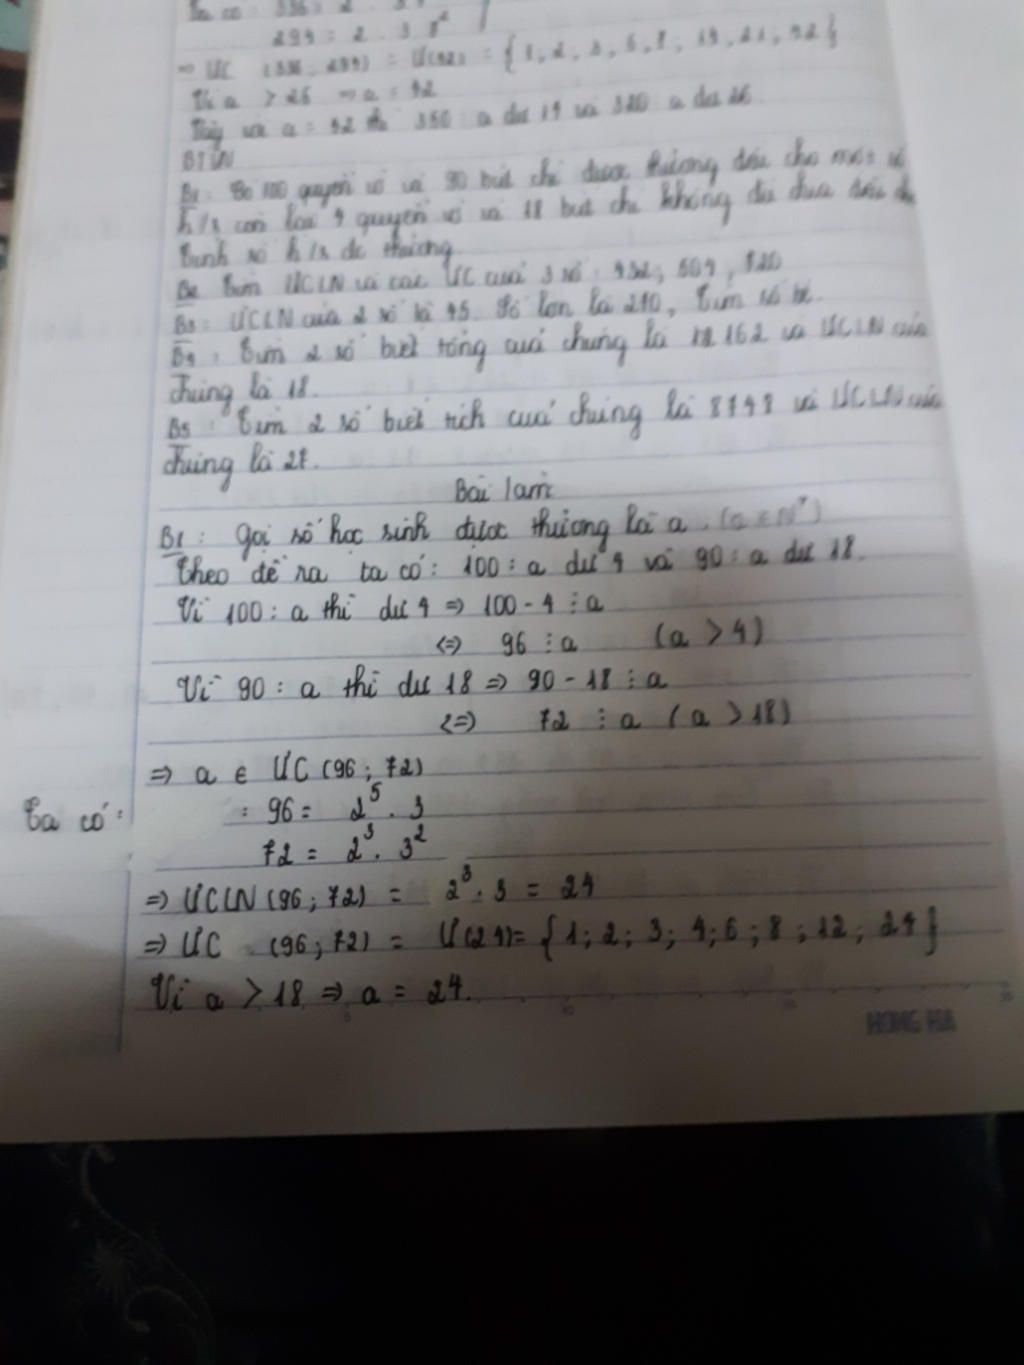 Ta có : 336 = 2 . 3 .
294 = 2 . 3 7²
⇒ ƯC (336 ; 294) = Ư(42) = {1, 2 ; 3, 6, 7 ; 14, 21 ; 42}
Vì a > 26 ⇒ a = 42
Vậy với a = 42 thì 350 : a dư 14 và 320 : a dư 26.
BTVN
B1 : Có 100 quyển vở và 90 bút chì được thưởng đều cho một số
h/s còn lại 4 quyển vở và 18 bút chì không đủ chia đều
Tính số h/s đc thưởng
B2 Tìm ƯCLN và các ƯC của 3 số : 432 ; 504 , 720
B3 : ƯCLN của 2 số là 45. Số lớn là 270, Tìm số bé.
B4 : Tìm 2 số biết tổng của chúng là 162 và ƯCLN của
chúng là 18.
B5 : Tìm 2 số biết tích của chúng là 8748 và ƯCLN của
chúng là 27.
Bài làm
B1 : Gọi số học sinh được thưởng là a. (a ∈ N*)
Theo đề ra ta có : 100 : a dư 4 và 90 : a dư 18.
Vì 100 : a thì dư 4 ⇒ 100 - 4 ⋮ a
⇔ 96 ⋮ a (a > 4)
Vì 90 : a thì dư 18 ⇒ 90 - 18 ⋮ a
⇔ 72 ⋮ a (a > 18)
⇒ a ∈ ƯC (96 ; 72)
Ta có : 96 = 2⁵ . 3
72 = 2³ . 3²
⇒ ƯCLN (96 ; 72) = 2³ . 3 = 24
⇒ ƯC (96 ; 72) = Ư(24) = {1 ; 2 ; 3 ; 4 ; 6 ; 8 ; 12 ; 24}
Vì a > 18 ⇒ a = 24.
HONG HA